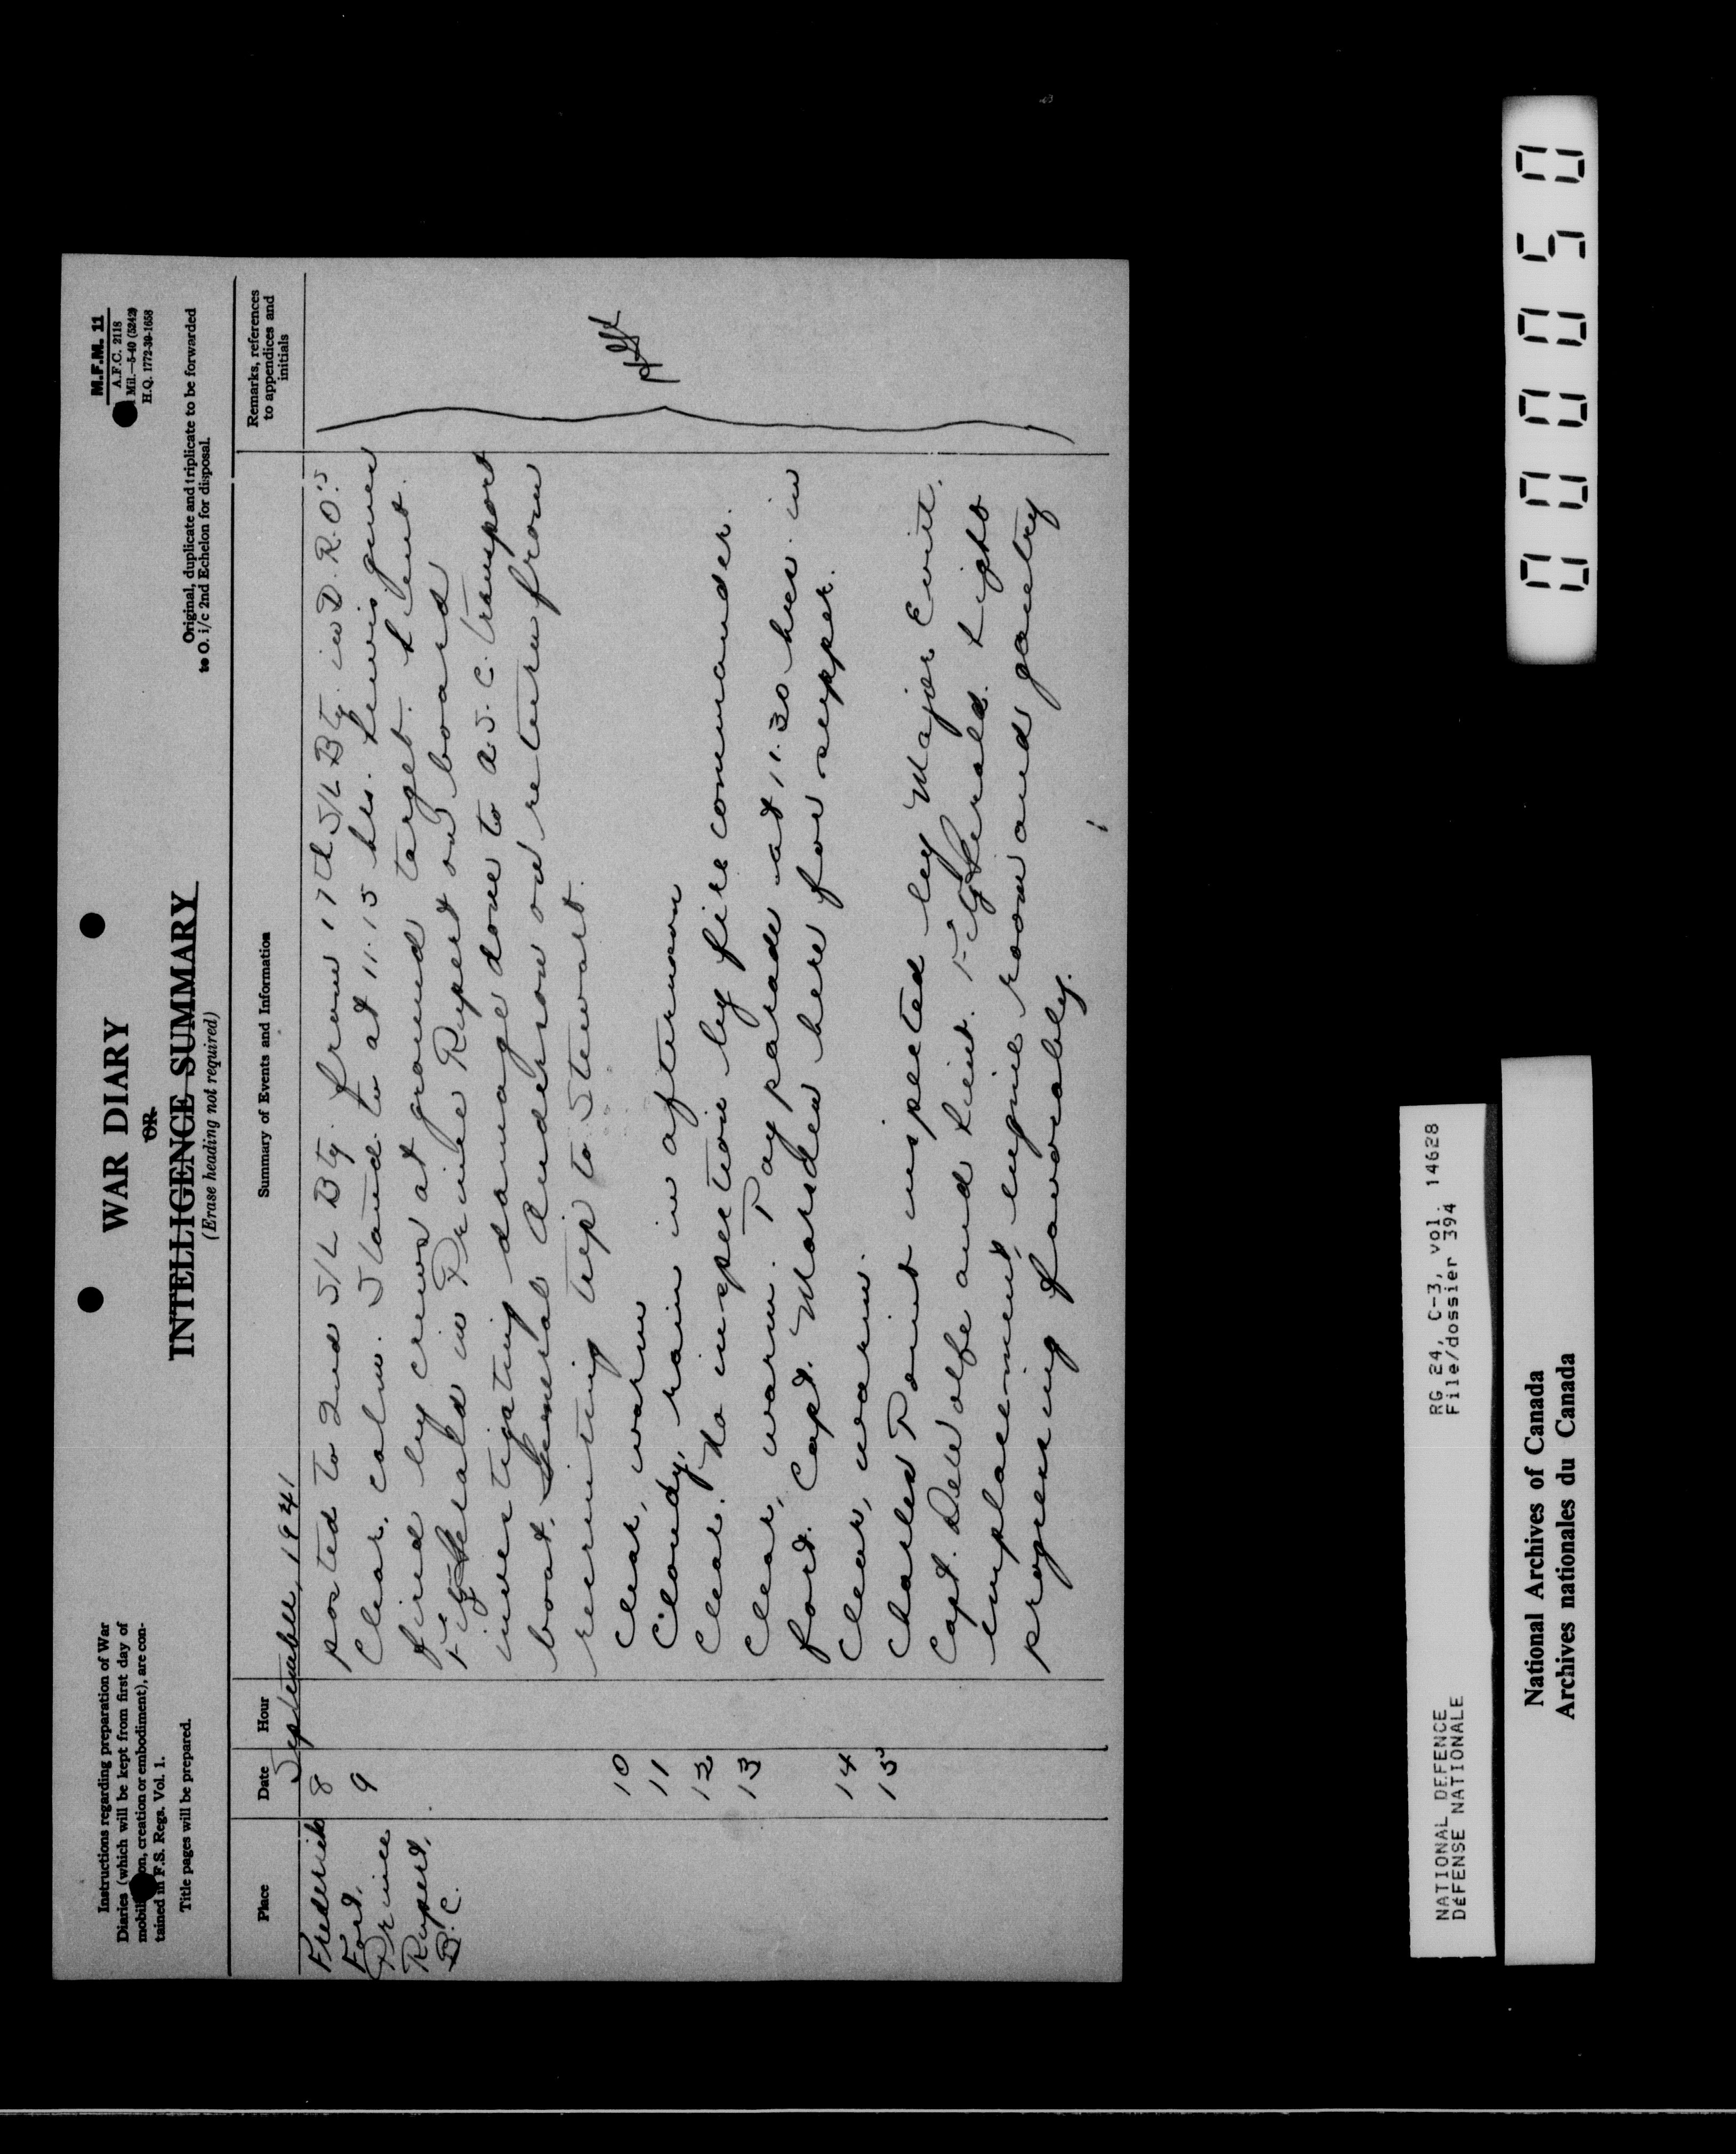 Instructions regarding preparation of War
Diaries (which will be kept from first day of
creation or embodiment), are con-
tained in F.S. Regs. Vol. 1.
Title pages will be prepared.
WAR DIARY
OR
INTELLIGENCE SUMMARY
(Erase heading not required)
M.F.M. 11
A.F.C. 2118
Mil.—5-40 (5242)
H.Q. 1772-39-1658
Original, duplicate and triplicate to be forwarded
to O. i/c 2nd Echelon for disposal.
Place
Date
Hour
Summary of Events and Information
Remarks, references
to appendices and
initials
September, 1941
Frederick
Fort,
Prince
Rupert,
B.C.
8 posted to 2nd S/L Bty. from 17th S/L Bty. in D.R.O's
9 Clear, calm. Stand to at 11.15 hrs. Lewis guns
fired by crews at ground target. Lieut.
Fitzgerald in Prince Rupert on board
investigating damage done to A.S.C. transport
boat. General Anderson on return from
recruiting trip to Stewart.
10 Clear, warm
11 Cloudy, rain in afternoon
12 Clear. No inspection by fire commander.
13 Clear, warm. Pay parade at 11.30 hrs. in
fort. Capt. Marsden here for supper.
14 Clear, warm.
15 Charles Point inspected by Major Evitt,
Capt. DeWolfe and Lieut. Fitzgerald. Light
emplacement, engine room and gantry
progressing favorably.
NATIONAL DEFENCE
DÉFENSE NATIONALE
RG 24, C-3, vol. 14628
File/dossier 394
National Archives of Canada
Archives nationales du Canada
000050